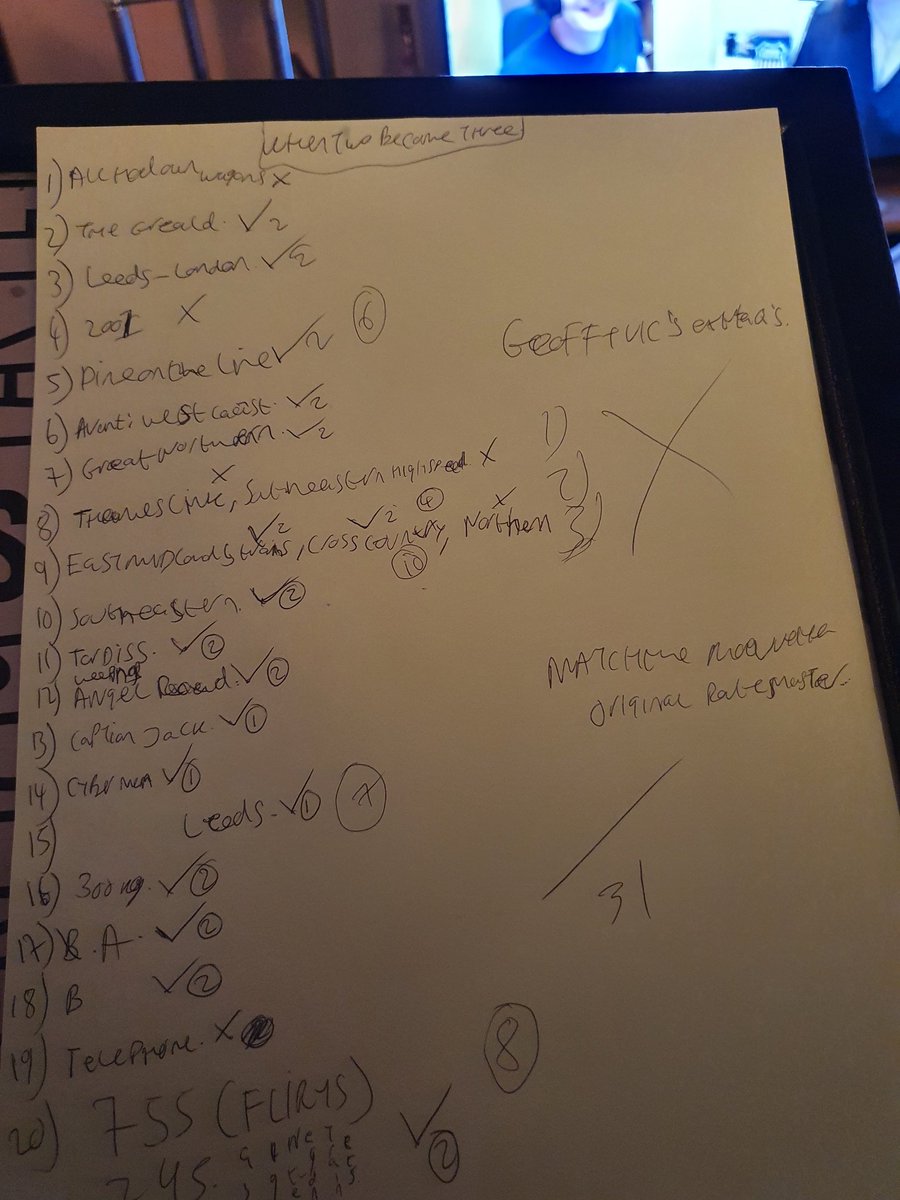 When Two Became Three
1) All Hadour wagons X
2) The Gerald. ✓2
3) Leeds-London. ✓2
4) 2001 X
6
5) Pine on the Line ✓2
6) Avanti west coast. ✓2
7) Great Northern. ✓2
8) Thameslink, Southeastern Highspeed X
X
9) East midlands trains, Cross Country, Northern
✓2 ✓2 4 X
10
10) Southeastern. ✓2
11) Tardiss. ✓2
12) weeping Angel ✓2
13) Caption Jack. ✓1
14) Cybermen ✓1
15) Leeds. ✓1 7
16) 300 ✓2
17) A. ✓2
18) B ✓2
19) Telephone. X
8
20) 755 (FLIRTS) ✓2
745.
Geoff + Vic's extra's.
1)
2)
3)
X
Matching moquette
Original Roundmaster.
/
31